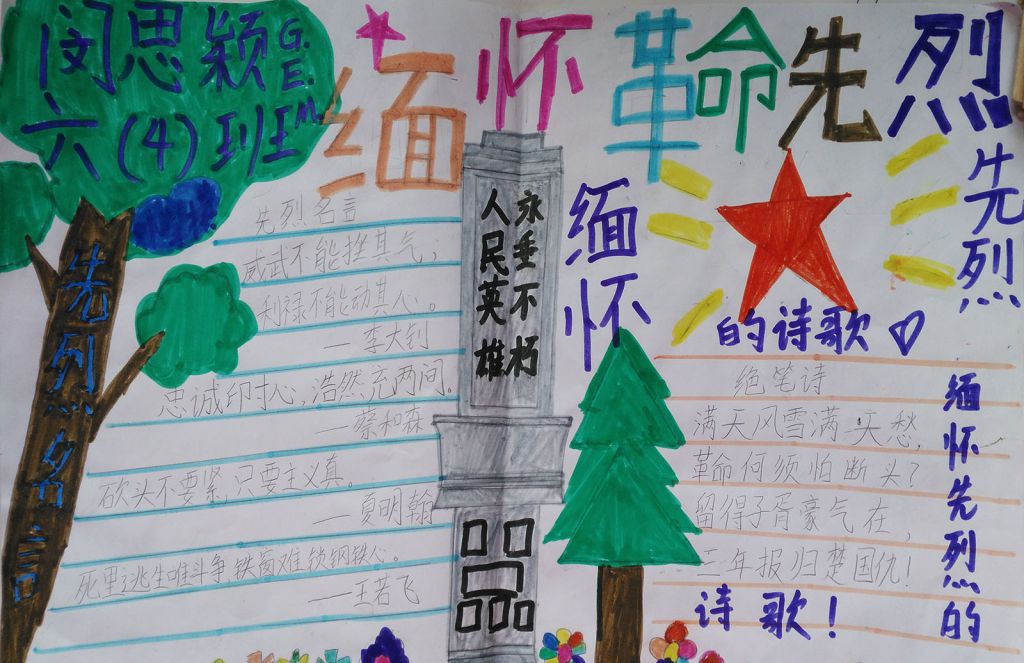 闵思颖G.E.M
六(4)班
缅怀革命先烈
先烈名言
先烈名言
威武不能挫其气；
利禄不能动其心。
——李大钊
忠诚印寸心，浩然充两间。
——蔡和森
砍头不要紧，只要主义真。
——夏明翰
死里逃生唯斗争，铁窗难锁钢铁心。
——王若飞
永垂不朽
人民英雄
缅怀
先烈
的诗歌
绝笔诗
满天风雪满天愁，
革命何须怕断头？
留得子胥豪气在，
三年报归楚国仇！
缅怀先烈的
诗歌！